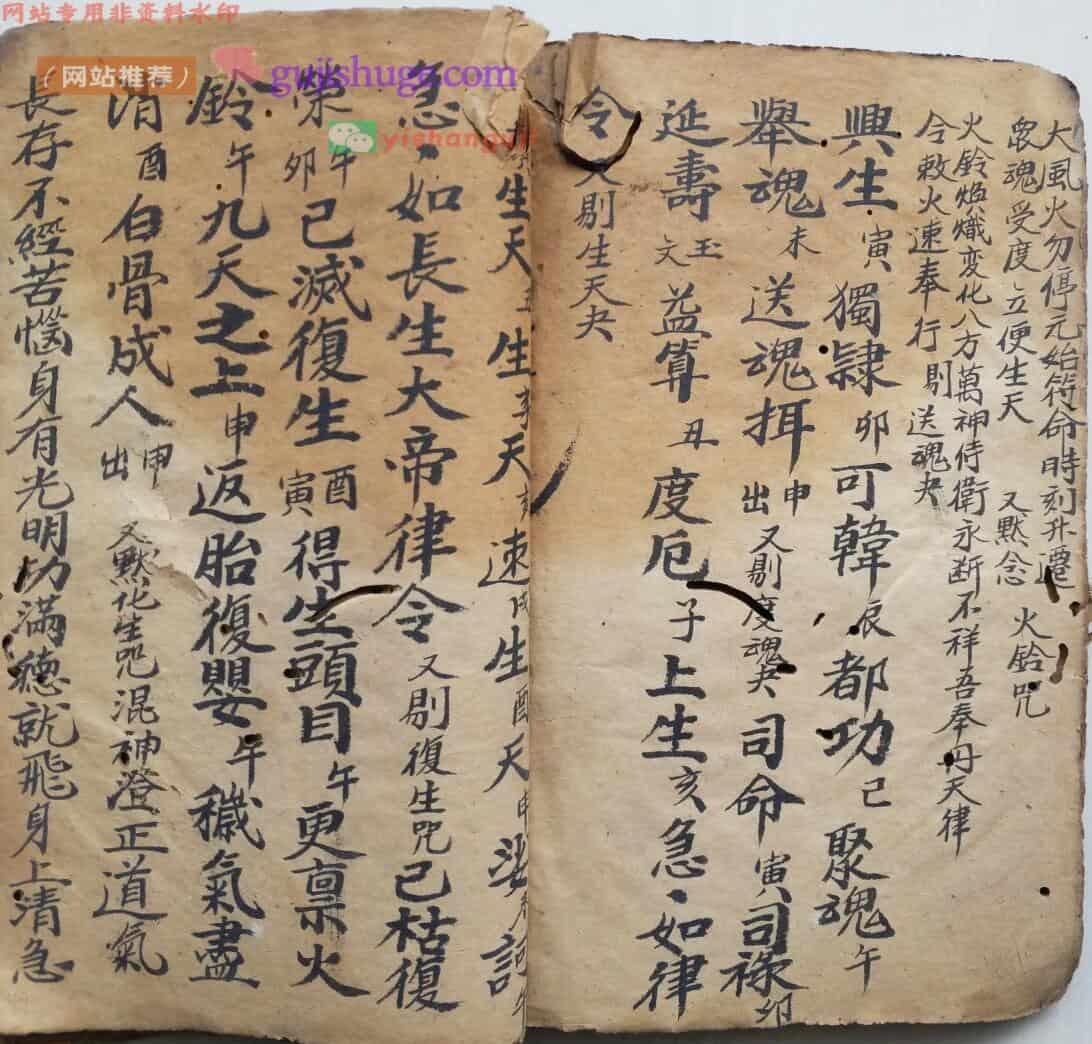 网站专用非资料水印
(网站推荐)
gujishuge.com
yishanguji
大風火勿停元始符命時刻升遷
眾魂受度立便生天 又默念 火鈴咒
火鈴焰熾变化八方萬神侍衛永断不祥吾奉丹天律
令敕火速奉行 剔送魂夬
興生寅獨隸卯可韓辰都功巳聚魂午
舉魂未送魂揖申出又剔度魂夬司命寅司祿卯
延壽玉文益算丑度厄子上生亥急如律
令又剔生天夬
生天生天亥速戌生酉天申娑訶午
急如長生大帝律令又剔復生咒已枯復
榮午卯已滅復生酉寅得生頭目午更禀火
鈴午九天之上申返胎復嬰午穢氣盡
消酉白骨成人申出又默化生咒混神澄正道氣
長存不經苦惱身有光明功滿德就飛身上清急